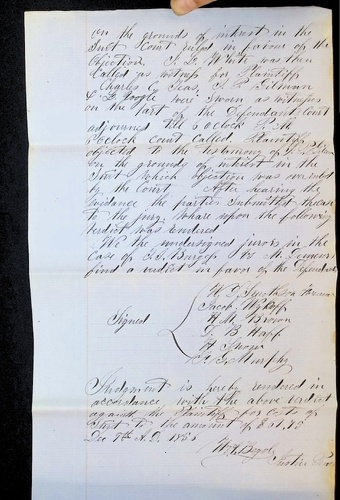 on the grounds of interest in the
Suit Court ruled in favour of the
Objection. White was then
Called as witness for Plaintiff
Charles Seas,
were sworn as witnesses
on the part of the Defendant, court
adjourned till 6 oclock P. M.
oclock Court Called. Plaintiff
objected to the testimony of
on the grounds of interest in the
Suit which objection was
by the Court. After hearing the
Evidence the parties Submitted the case
to the jury, whare upon the following
verdict was rendered
We the undersigned jurors in the
Case of vs
find a verdict in favor of the Defendant
Foreman
Jacob Wykoff
H. M. Brown
Signed
B Happ
H
Murphy
Judgment is hereby rendered in
accordance with the above verdict
against the Plaintiff for Costs of
Suit to the amount of $
Dec A.D.
Justice Peace